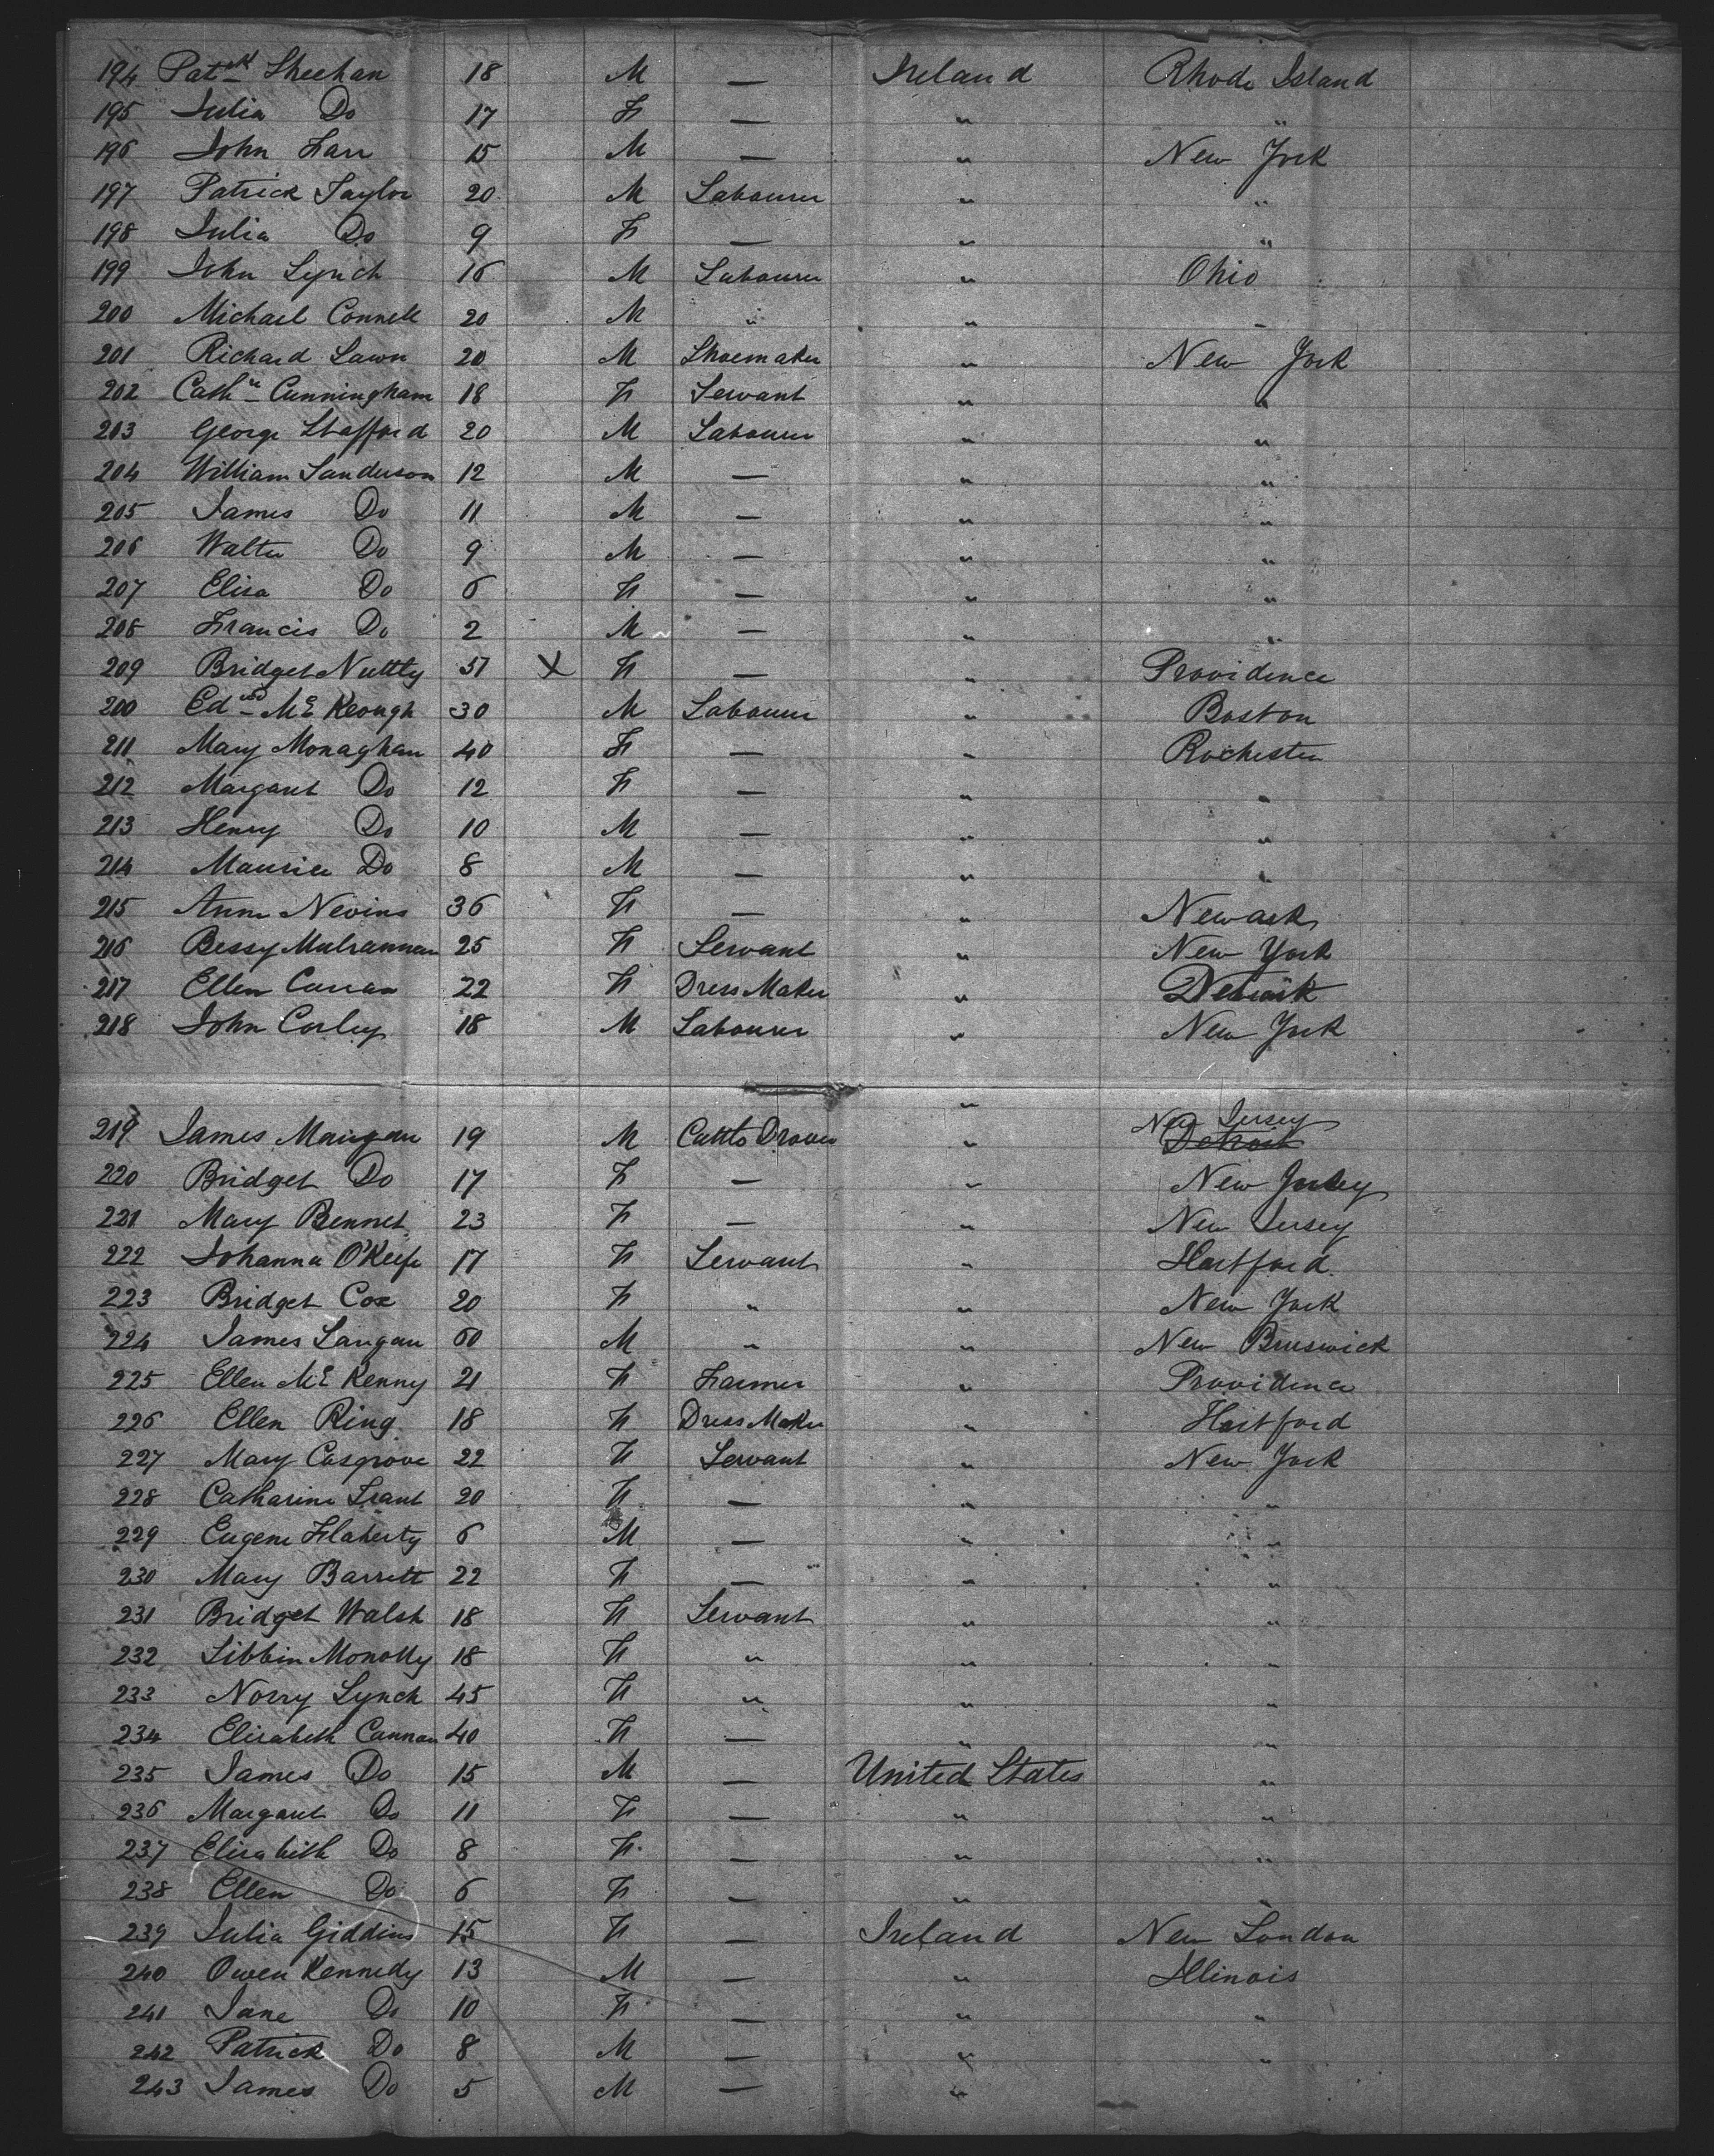 194 Patck Sheehan 18 M — Ireland Rhode Island
195 Julia Do 17 F — " "
196 John Farr 15 M — " New York
197 Patrick Taylor 20 M Labourer " "
198 Julia Do 9 F — " "
199 John Lynch 16 M Labourer " Ohio
200 Michael Connell 20 M " " "
201 Richard Lawn 20 M Shoemaker " New York
202 Cathn Cunningham 18 F Servant " "
203 George Stafford 20 M Labourer " "
204 William Sanderson 12 M — " "
205 James Do 11 M — " "
206 Walter Do 9 M — " "
207 Elisa Do 6 F — " "
208 Francis Do 2 M — " "
209 Bridget Nultty 51 X F — " Providence
200 Edwd McKeough 30 M Labourer " Boston
211 Mary Monaghan 40 F — " Rochester
212 Margaret Do 12 F — " "
213 Henry Do 10 M — " "
214 Maurice Do 8 M — " "
215 Anne Nevins 36 F — " Newark
216 Bessy 25 F Servant " New York
217 Ellen Curran 22 F Dress Maker " Detroit
218 John Corley 18 M Labourer " New York
" New Jersey
219 James Mangan 19 M Cattle Drover " Detroit
220 Bridget Do 17 F — " New Jersey
221 Mary Bennet 23 F — " New Jersey
222 Johanna O'Keefe 17 F Servant " Hartford
223 Bridget Cox 20 F " " New York
224 James Langan 60 M " " New Bruswick
225 Ellen McKenny 21 F Farmer " Providence
226 Ellen Ring 18 F Dress Maker " Hartford
227 Mary Casgrove 22 F Servant " New York
228 Catharine Trant 20 F — " "
229 Eugene Flaherty 6 M — " "
230 Mary Barrett 22 F — " "
231 Bridget Walsh 18 F Servant " "
232 Libbin 18 F " " "
233 Norry Lynch 45 F " " "
234 Elisabeth Cannon 40 F — " "
235 James Do 15 M — United States "
236 Margaret Do 11 F — " "
237 Elisabeth Do 8 F — " "
238 Ellen Do 6 F — " "
239 Julia Giddins 15 F — Ireland New London
240 Owen Kennedy 13 M — " Illinois
241 Jane Do 10 F — " "
242 Patrick Do 8 M — " "
243 James Do 5 M — "